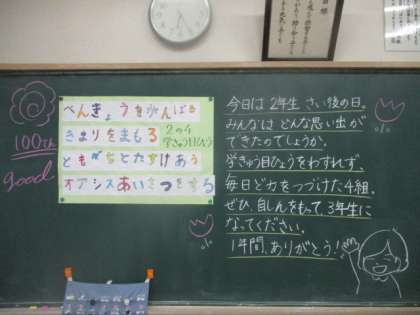 100てん
good
べんきょうをがんばる
きまりをまもる
2の4
学きゅう目ひょう
ともだちとたすけあう
オアシスあいさつをする
今日は2年生 さい後の日。
みんなは どんな思い出が
できたのでしょうか。
学きゅう目ひょうをわすれず、
毎日ど力をつづけた4組。
ぜひ、自しんをもって、3年生に
なってください。
1年間、ありがとう!